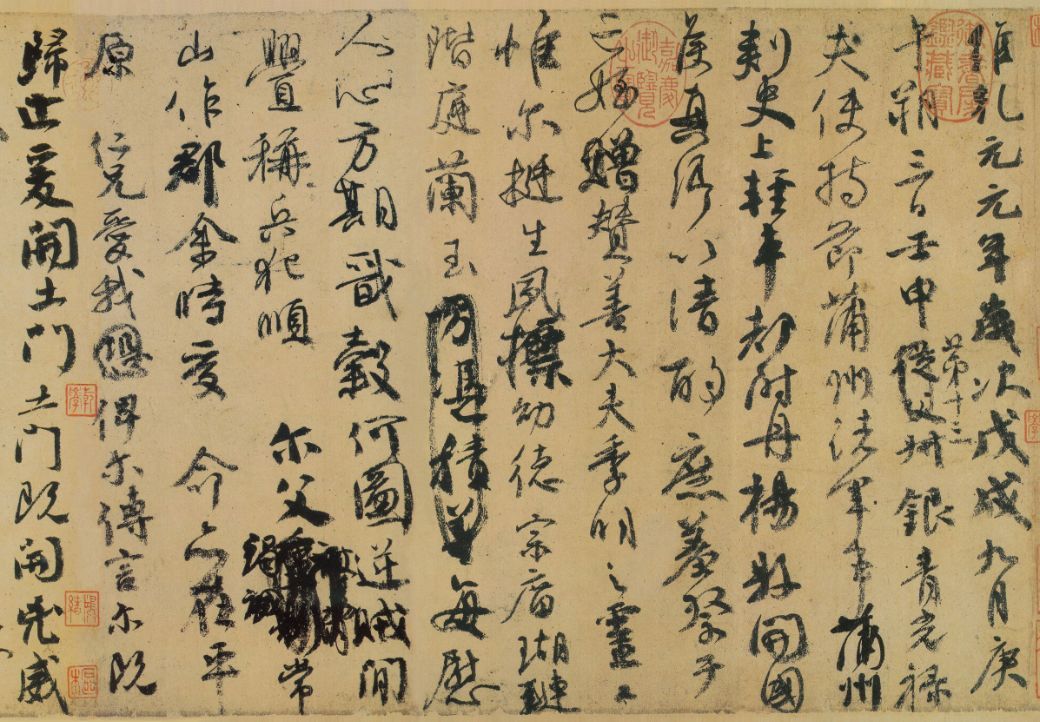 維乾元元年歲次戊戌九月庚
午朔三日壬申第十三從父叔銀青光祿
夫使持節蒲州諸軍事蒲州
刺史上輕車都尉丹楊縣開國
侯真卿以清酌庶羞祭于
亡姪贈贊善大夫季明之靈曰
惟尔挺生夙標幼德宗廟瑚璉
階庭蘭玉方憑積善每慰
人心方期戩穀何圖逆賊閒
釁稱兵犯順尔父竭誠常
山作郡余時受命亦在平
原仁兄愛我恐俾尔傳言尔既
歸止爰開土門土門既開兇威
嘉慶御覽之寶